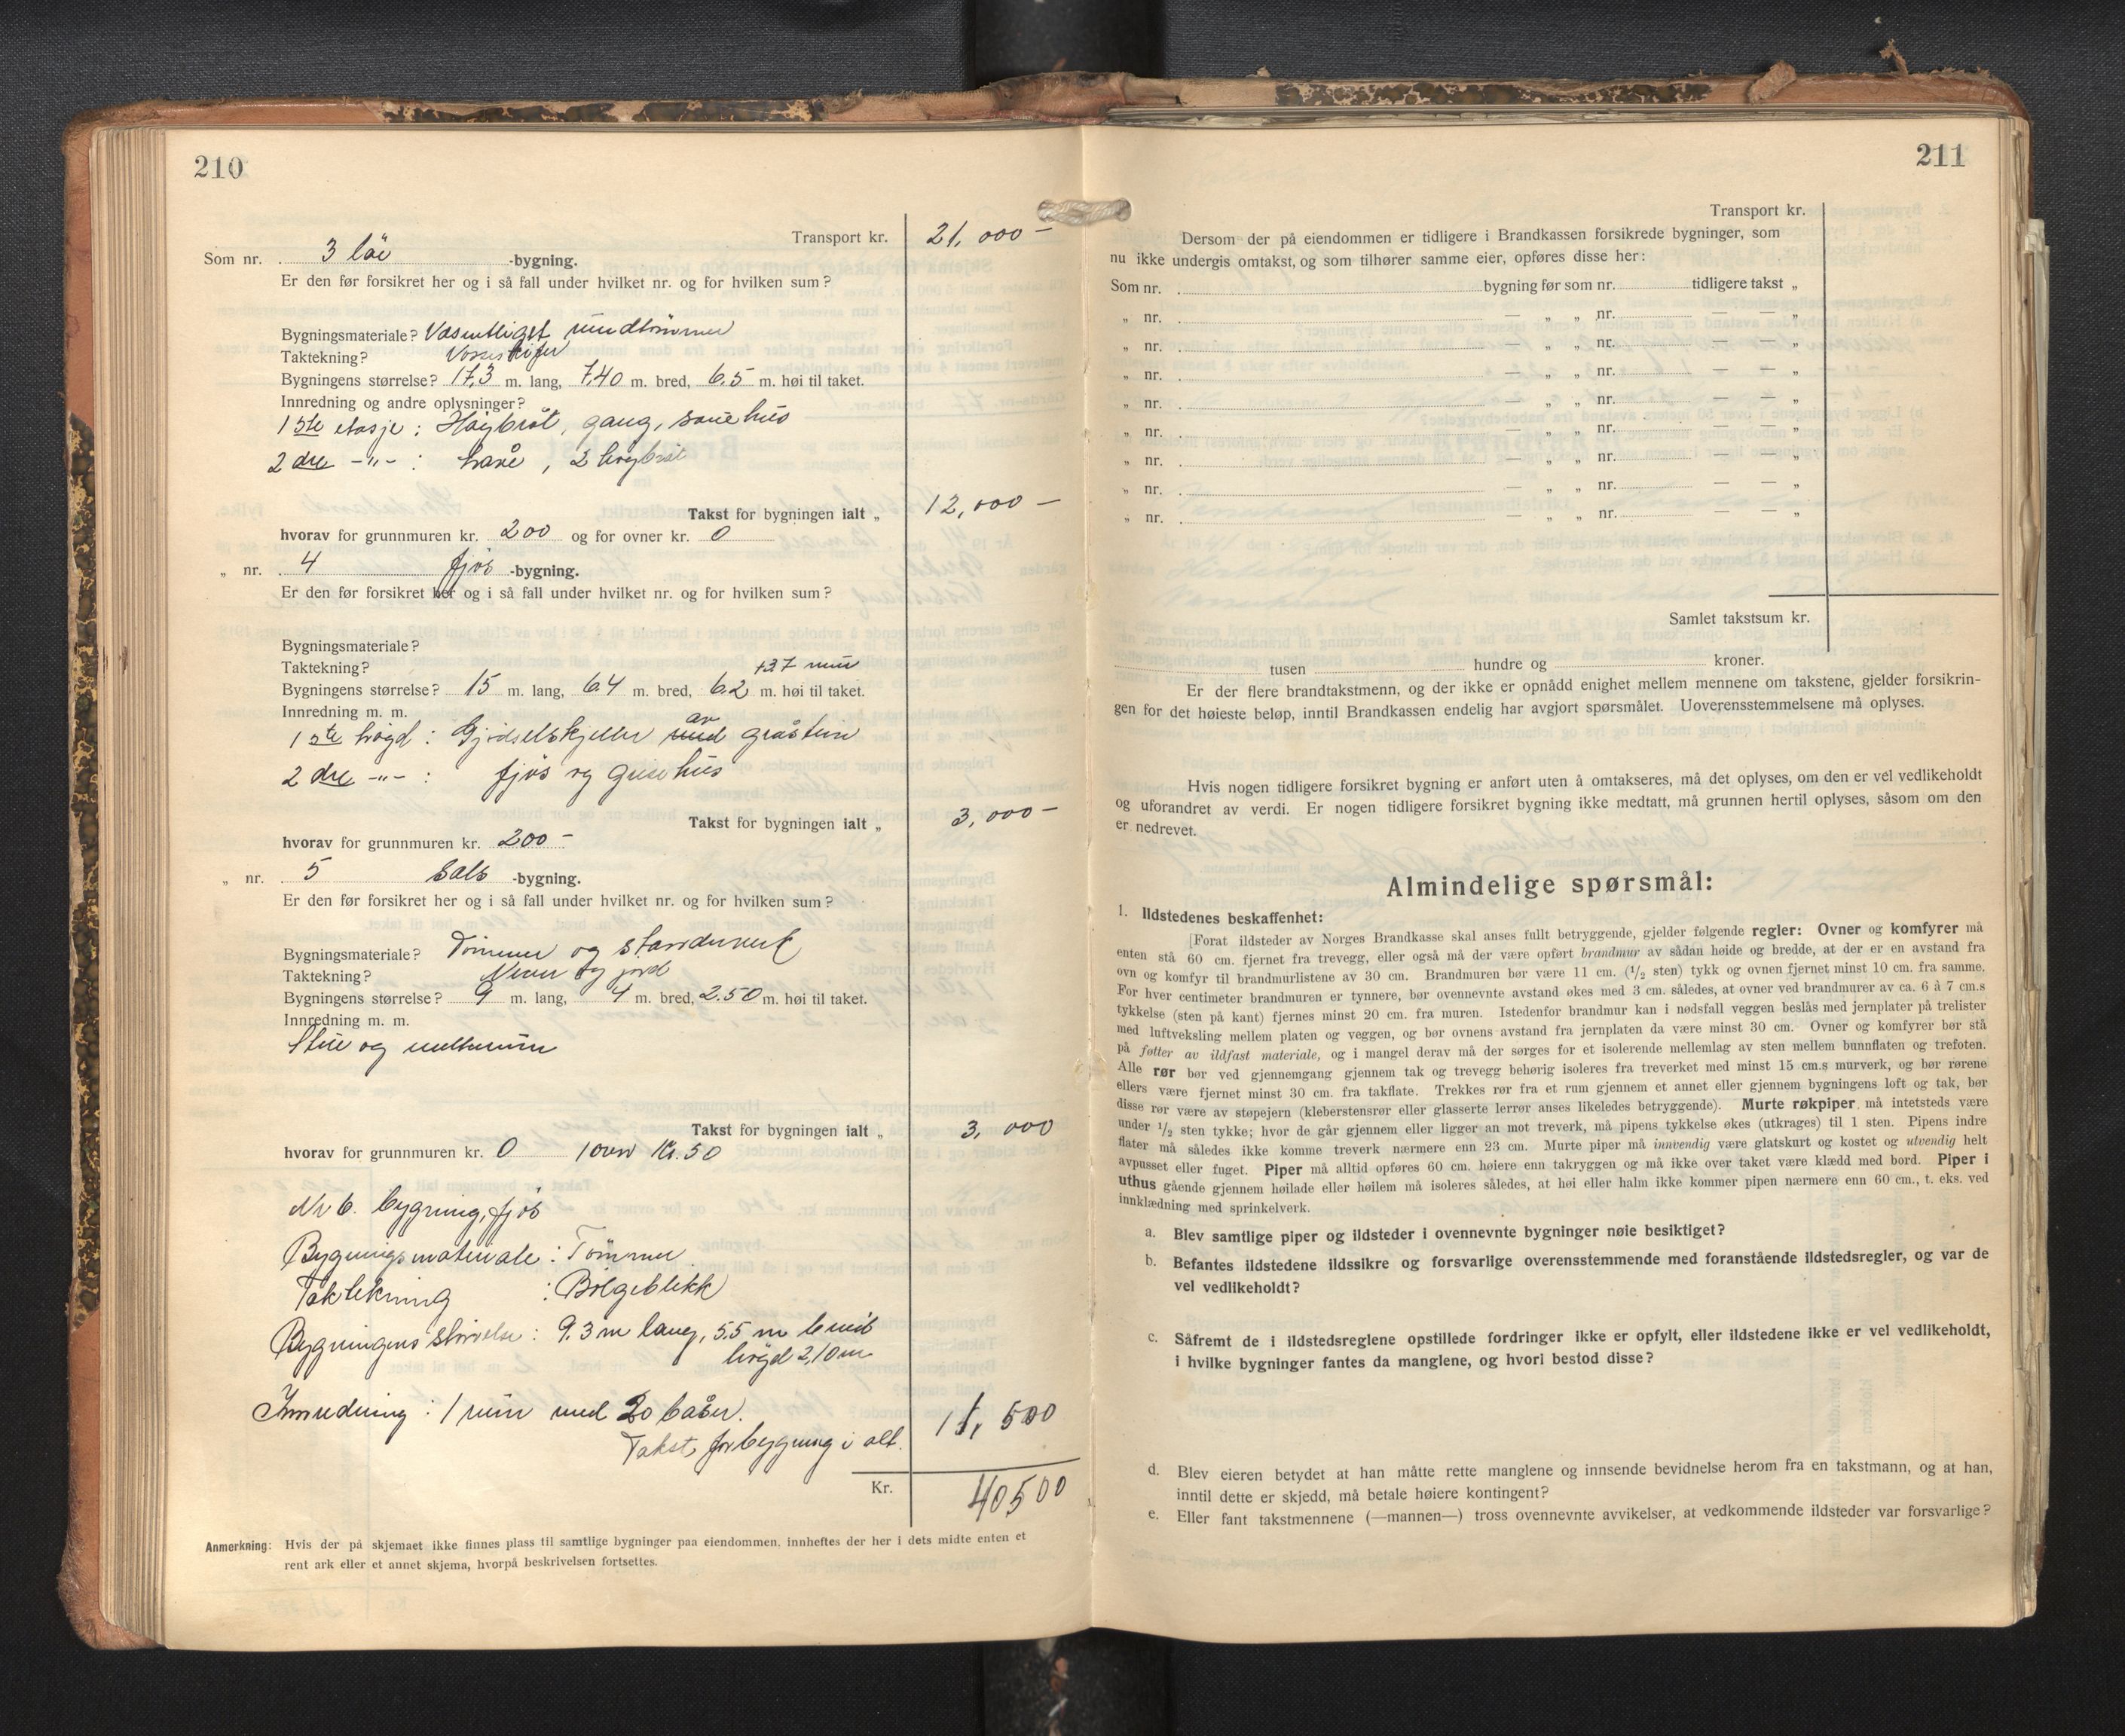 210
Transport kr. 21,000 —
Som nr. 3 löe -bygning.
Er den før forsikret her og i så fall under hvilket nr. og for hvilken sum?
Bygningsmateriale? Vasentligst rundtømmer
Taktekning? Vosseskifer
Bygningens størrelse? 17,3 m. lang, 7,40 m. bred, 6.5 m. høi til taket.
Innredning og andre oplysninger?
1ste etasje : Høybrot, gang, sauehus
2dre -"- : Låve, 2 høybrot
Takst for bygningen ialt „ 12,000 —
hvorav for grunnmuren kr. 200 og for ovner kr. 0
„ nr. 4 fjøs -bygning.
Er den før forsikret her og i så fall under hvilket nr. og for hvilken sum?
Bygningsmateriale?
Taktekning?
Bygningens størrelse? 15 m. lang, 6.4 m. bred, 6.2 m. høi til taket.
Innredning m. m.
1ste høgd : Gjødselskjeller med av gråstein
2dre -"- : fjøs og grisehus
Takst for bygningen ialt „ 3,000 —
hvorav for grunnmuren kr. 200 —
„ nr. 5 Sels -bygning.
Er den før forsikret her og i så fall under hvilket nr. og for hvilken sum?
Bygningsmateriale? Tømmer og standverk
Taktekning? Never og jord
Bygningens størrelse? 9 m. lang, 4 m. bred, 2.50 m. høi til taket.
Innredning m. m.
Stue og melkerum
Takst for bygningen ialt „ 3,000
hvorav for grunnmuren kr. 0 1 ovn Kr. 50
Nr 6. bygning, fjøs
Bygningsmateriale : Tømmer
Taktekning : Bølgeblikk
Bygningens størrelse : 9.3 m lang, 5.5 m breid
høgd 2,10 m
Innredning : 1 rum med 20 båser.
Takst for bygning i alt. 1,500
Kr. 40500
Anmerkning: Hvis der på skjemaet ikke finnes plass til samtlige bygninger paa eiendommen, innheftes der her i dets midte enten et
rent ark eller et annet skjema, hvorpå beskrivelsen fortsettes.
211
Transport kr.
Dersom der på eiendommen er tidligere i Brandkassen forsikrede bygninger, som
nu ikke undergis omtakst, og som tilhører samme eier, opføres disse her:
Som nr. bygning før som nr. tidligere takst „
„ nr. — „ „ nr. — — „
„ nr. — „ „ nr. — — „
„ nr. — „ „ nr. — — „
„ nr. — „ „ nr. — — „
„ nr. — „ „ nr. — — „
„ nr. — „ „ nr. — — „
„ nr. — „ „ nr. — — „
„ nr. — „ „ nr. — — „
Samlet takstsum kr.
tusen hundre og kroner.
Er der flere brandtakstmenn, og der ikke er opnådd enighet mellem mennene om takstene, gjelder forsikrin-
gen for det høieste beløp, inntil Brandkassen endelig har avgjort spørsmålet. Uoverensstemmelsene må oplyses.
Hvis nogen tidligere forsikret bygning er anført uten å omtakseres, må det oplyses, om den er vel vedlikeholdt
og uforandret av verdi. Er nogen tidligere forsikret bygning ikke medtatt, må grunnen hertil oplyses, såsom om den
er nedrevet.
Almindelige spørsmål:
1. Ildstedenes beskaffenhet:
[Forat ildsteder av Norges Brandkasse skal anses fullt betryggende, gjelder følgende regler: Ovner og komfyrer må
enten stå 60 cm. fjernet fra trevegg, eller også må der være opført brandmur av sådan høide og bredde, at der er en avstand fra
ovn og komfyr til brandmurlistene av 30 cm. Brandmuren bør være 11 cm. (1/2 sten) tykk og ovnen fjernet minst 10 cm. fra samme.
For hver centimeter brandmuren er tynnere, bør ovennevnte avstand økes med 3 cm. således, at ovner ved brandmurer av ca. 6 à 7 cm.s
tykkelse (sten på kant) fjernes minst 20 cm. fra muren. Istedenfor brandmur kan i nødsfall veggen beslås med jernplater på trelister
med luftveksling mellem platen og veggen, og bør ovnens avstand fra jernplaten da være minst 30 cm. Ovner og komfyrer bør stå
på føtter av ildfast materiale, og i mangel derav må der sørges for et isolerende mellemlag av sten mellem bunnflaten og trefoten.
Alle rør bør ved gjennemgang gjennem tak og trevegg behørig isoleres fra treverket med minst 15 cm.s murverk, og bør rørene
ellers være fjernet minst 30 cm. fra takflate. Trekkes rør fra et rum gjennem et annet eller gjennem bygningens loft og tak, bør
disse rør være av støpejern (kleberstensrør eller glasserte lerrør anses likeledes betryggende). Murte røkpiper må intetsteds være
under 1/2 sten tykke; hvor de går gjennem eller ligger an mot treverk, må pipens tykkelse økes (utkrages) til 1 sten. Pipens indre
flater må således ikke komme treverk nærmere enn 23 cm. Murte piper må innvendig være glatskurt og kostet og utvendig helt
avpusset eller fuget. Piper må alltid opføres 60 cm. høiere enn takryggen og må ikke over taket være klædd med bord. Piper i
uthus gående gjennem høilade eller høilem må isoleres således, at høi eller halm ikke kommer pipen nærmere enn 60 cm., t. eks. ved
innklædning med sprinkelverk.
a. Blev samtlige piper og ildsteder i ovennevnte bygninger nøie besiktiget?
b. Befantes ildstedene ildssikre og forsvarlige overensstemmende med foranstående ildstedsregler, og var de
vel vedlikeholdt?
c. Såfremt de i ildstedsreglene opstillede fordringer ikke er opfylt, eller ildstedene ikke er vel vedlikeholdt,
i hvilke bygninger fantes da manglene, og hvori bestod disse?
d. Blev eieren betydet at han måtte rette manglene og innsende bevidnelse herom fra en takstmann, og at han,
inntil dette er skjedd, må betale høiere kontingent?
e. Eller fant takstmennene (—mannen—) tross ovennevnte avvikelser, at vedkommende ildsteder var forsvarlige?